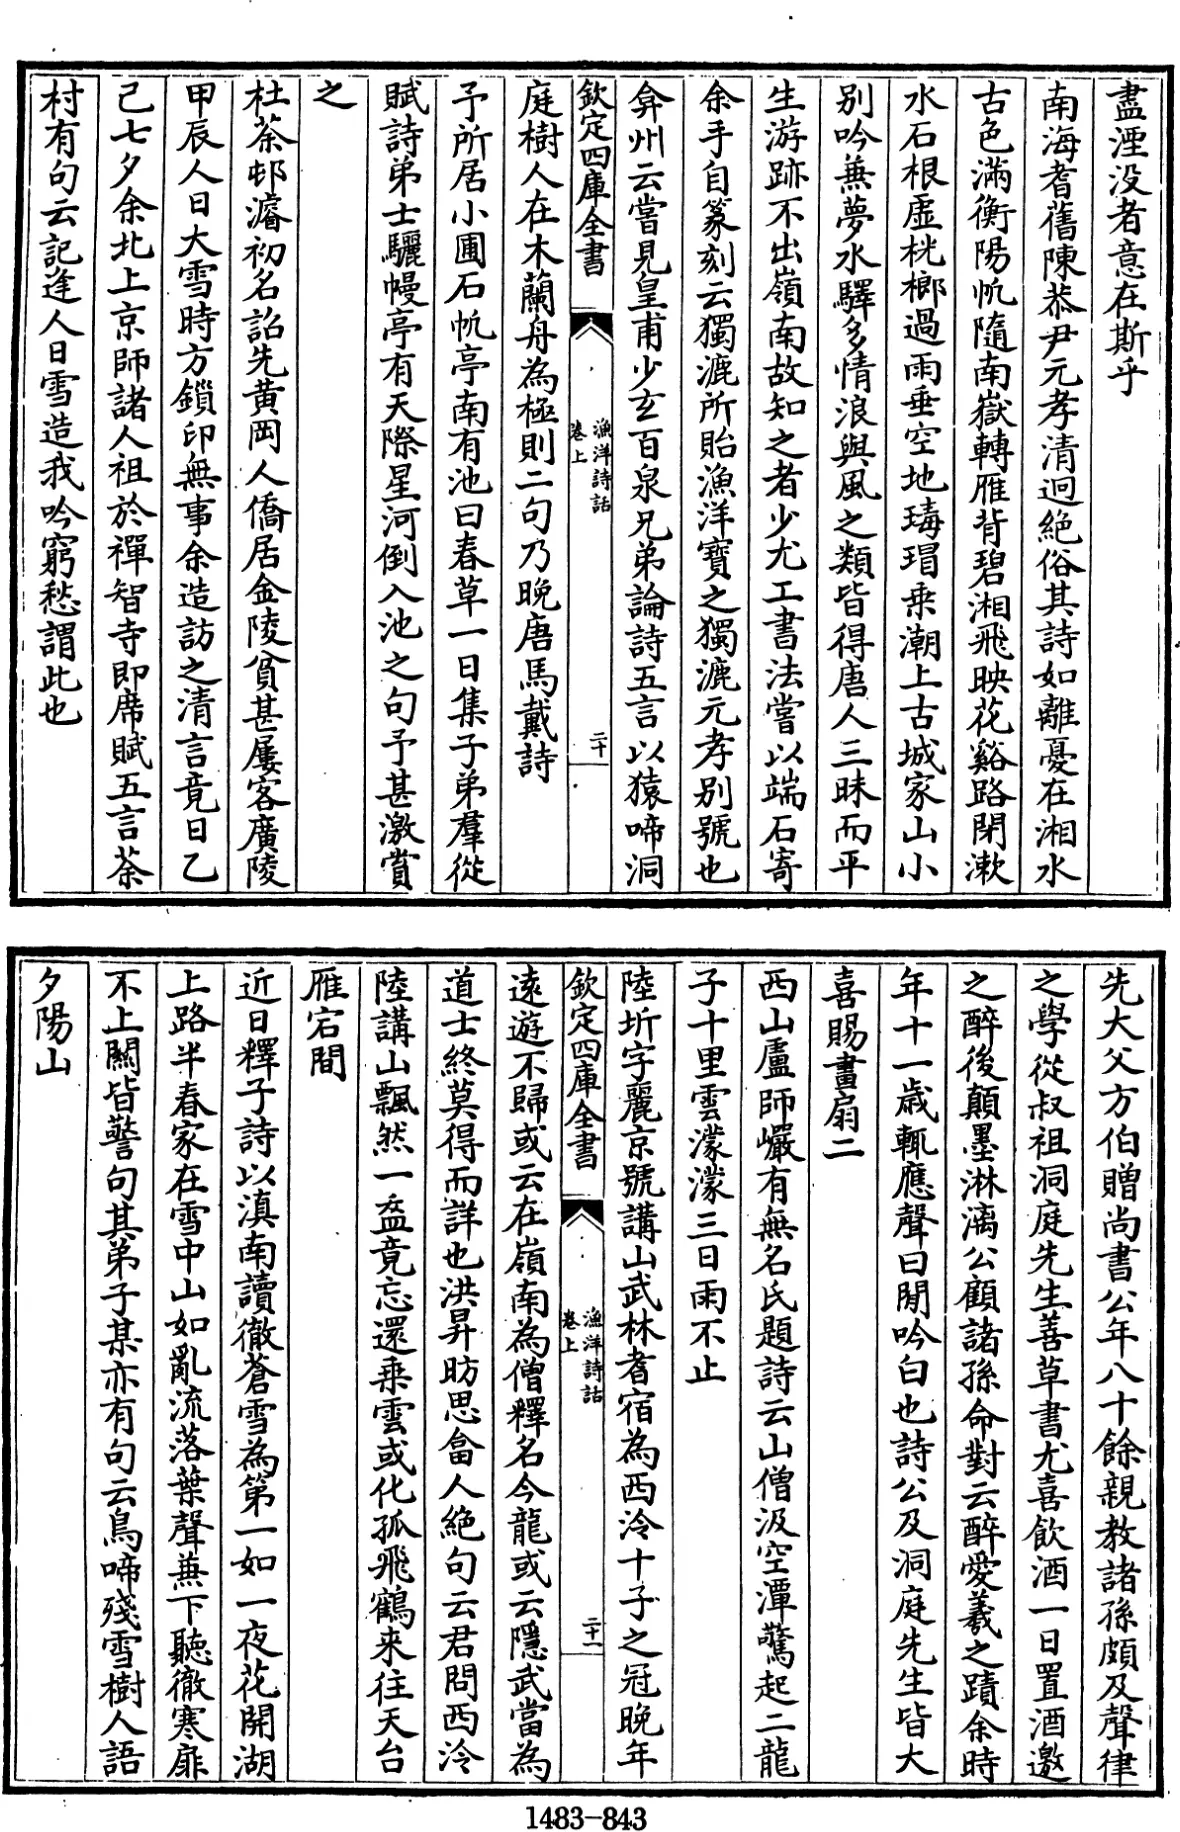 盡湮没者意在斯乎
南海耆舊陳恭尹元孝清迥絶俗其詩如離憂在湘水
古色滿衡陽帆隨南嶽轉雁背碧湘飛映花谿路閉漱
水石根虛桄榔過雨垂空地瑇瑁乗潮上古城家山小
别吟無夢水驛多情浪與風之類皆得唐人三昧而平
生游跡不出嶺南故知之者少尤工書法嘗以端石寄
余手自篆刻云獨漉所貽漁洋寶之獨漉元孝别號也
弇州云嘗見皇甫少玄百泉兄弟論詩五言以猿啼洞
欽定四庫全書
漁洋詩話
卷上
二十
庭樹人在木蘭舟為極則二句乃晩唐馬戴詩
予所居小圃石帆亭南有池曰春草一日集子弟羣從
賦詩弟士驪幔亭有天際星河倒入池之句予甚激賞
之
杜茶邨濬初名詔先黄岡人僑居金陵貧甚屢客廣陵
甲辰人日大雪時方鎻印無事余造訪之清言竟日乙
己七夕余北上京師諸人祖於禪智寺即席賦五言茶
村有句云記逢人日雪造我吟窮愁謂此也
先大父方伯贈尚書公年八十餘親教諸孫頗及聲律
之學從叔祖洞庭先生善草書尤喜飲酒一日置酒邀
之醉後顛墨淋漓公顧諸孫命對云醉愛羲之蹟余時
年十一歳輒應聲曰閒吟白也詩公及洞庭先生皆大
喜賜畫扇二
西山盧師巖有無名氏題詩云山僧汲空潭驚起二龍
子十里雲濛濛三日雨不止
陸圻字麗京號講山武林耆宿為西泠十子之冠晩年
欽定四庫全書
漁洋詩話
卷上
二十一
遠遊不歸或云在嶺南為僧釋名今龍或云隱武當為
道士終莫得而詳也洪昇昉思畣人絶句云君問西泠
陸講山飄然一盋竟忘還乗雲或化孤飛鶴來往天台
雁宕間
近日釋子詩以滇南讀徹蒼雪為第一如一夜花開湖
上路半春家在雪中山如亂流落葉聲兼下聽徹寒扉
不上關皆警句其弟子某亦有句云鳥啼殘雪樹人語
夕陽山
1483-843